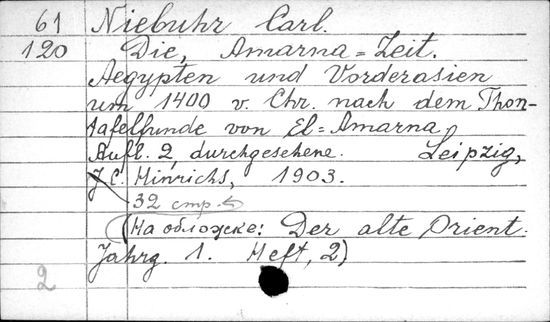 61 Niebuhr Carl.
120 Die, Amarna=Zeit.
Aegypten und Vorderasien
um 1400 v. Chr. nach dem Thon-
tafelfunde von El=Amarna
Aufl. 2, durchgesehene. Leipzig,
J.C. Hinrichs, 1903.
32 стр.
(На обложке: Der alte Orient.
Jahrg. 1. Heft, 2)
2